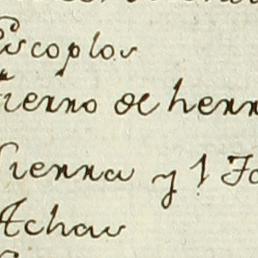 Escoplos
fierro de herr
Sierra y 1 Fo
Achas